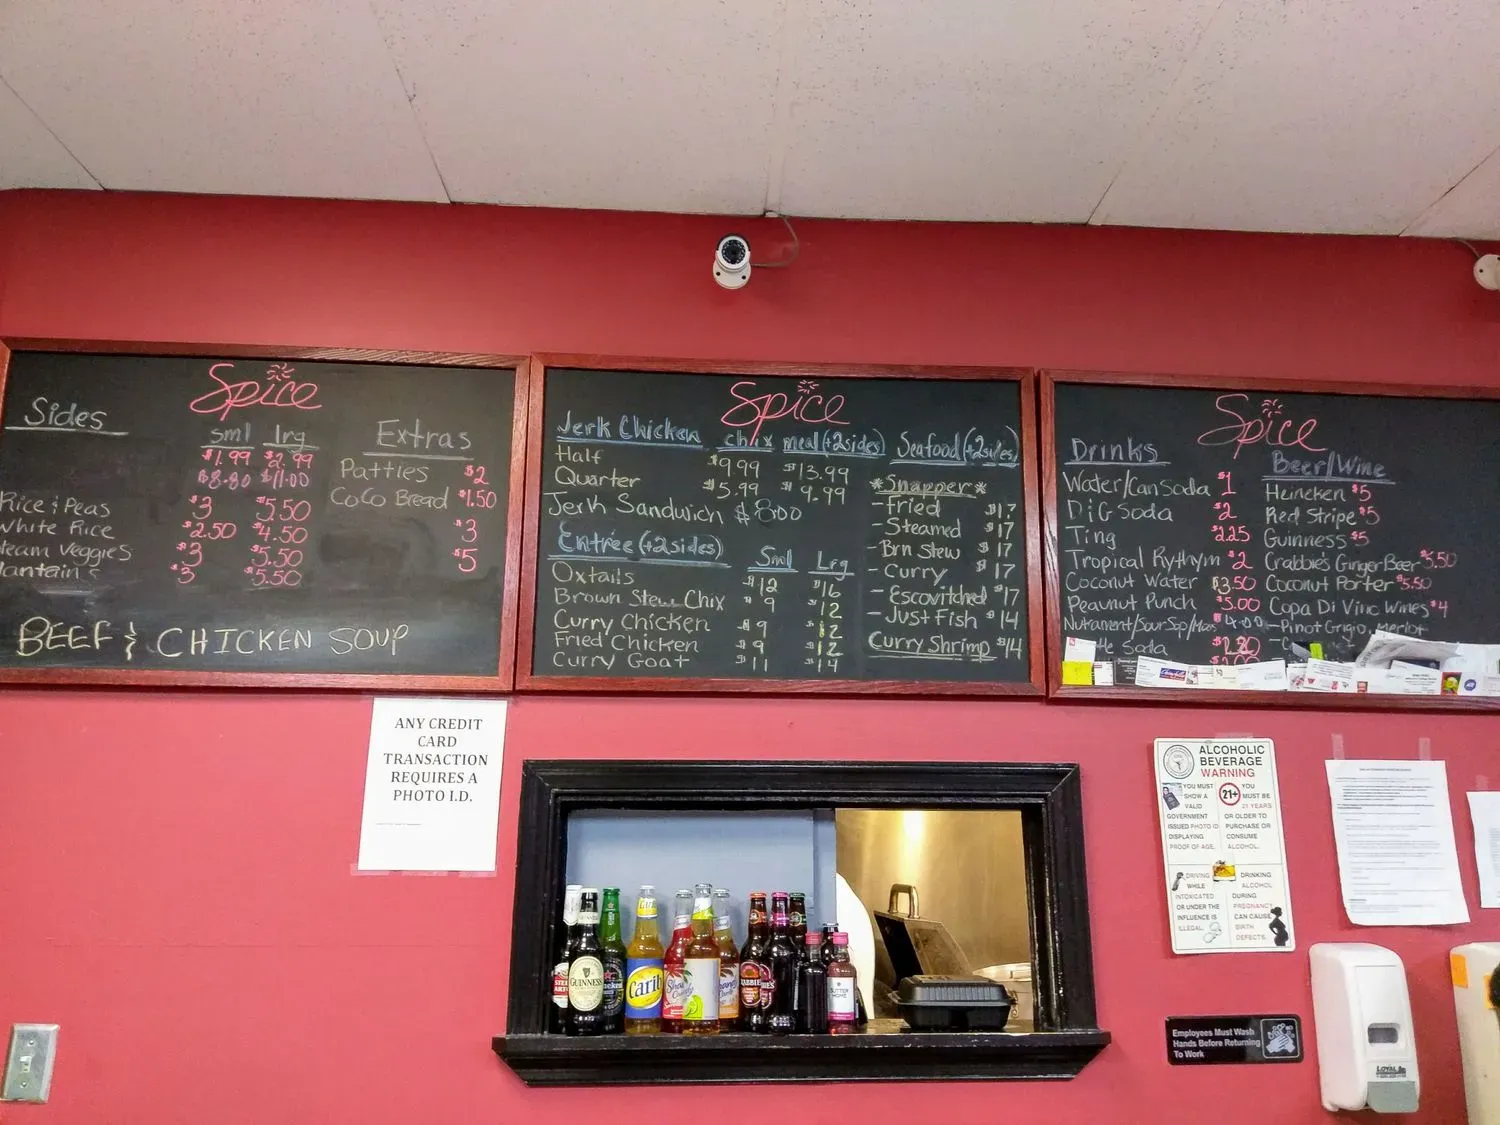 Spice
Sides
sml lrg
$1.99 $2.99
$8.80 $11.00
Rice & Peas $3 $5.50
White Rice $2.50 $4.50
team Veggies $3 $5.50
lantains $3 $5.50
Extras
Patties $2
CoCo Bread $1.50
$3
$5
BEEF & CHICKEN SOUP
Spice
Jerk Chicken chix meal (+2 sides)
Half $9.99 $13.99
Quarter $5.99 $9.99
Jerk Sandwich $8.00
Entrée (+2 sides) Sml Lrg
Oxtails $12 $16
Brown Stew Chix $9 $12
Curry Chicken $9 $12
Fried Chicken $9 $12
Curry Goat $11 $14
Seafood (+2 sides)
*Snapper*
-Fried $17
-Steamed $17
-Brn Stew $17
-Curry $17
-Escovitched $17
-Just Fish $14
Curry Shrimp $14
Spice
Drinks
Water/Can Soda $1
DiG Soda $2
Ting $2.25
Tropical Rythym $2
Coconut Water $3.50
Peaunut Punch $5.00
Nutrament/Sour Sop/ $4.00
Soda
Beer/Wine
Heineken $5
Red Stripe $5
Guinness $5
Crabbie's Ginger Beer $5.50
Coconut Porter $5.50
Copa Di Vino Wines $4
-Pinot Grigio, Merlot
ANY CREDIT
CARD
TRANSACTION
REQUIRES A
PHOTO I.D.
ALCOHOLIC
BEVERAGE
WARNING
YOU MUST
SHOW A
VALID
GOVERNMENT
ISSUED PHOTO ID
DISPLAYING
PROOF OF AGE.
21+
YOU
MUST BE
21 YEARS
OR OLDER TO
PURCHASE OR
CONSUME
ALCOHOL.
DRIVING
WHILE
INTOXICATED
OR UNDER THE
INFLUENCE IS
ILLEGAL.
DRINKING
ALCOHOL
DURING
PREGNANCY
CAN CAUSE
BIRTH
DEFECTS.
GUINNESS
Carib
Employees Must Wash
Hands Before Returning
To Work
LOYAL